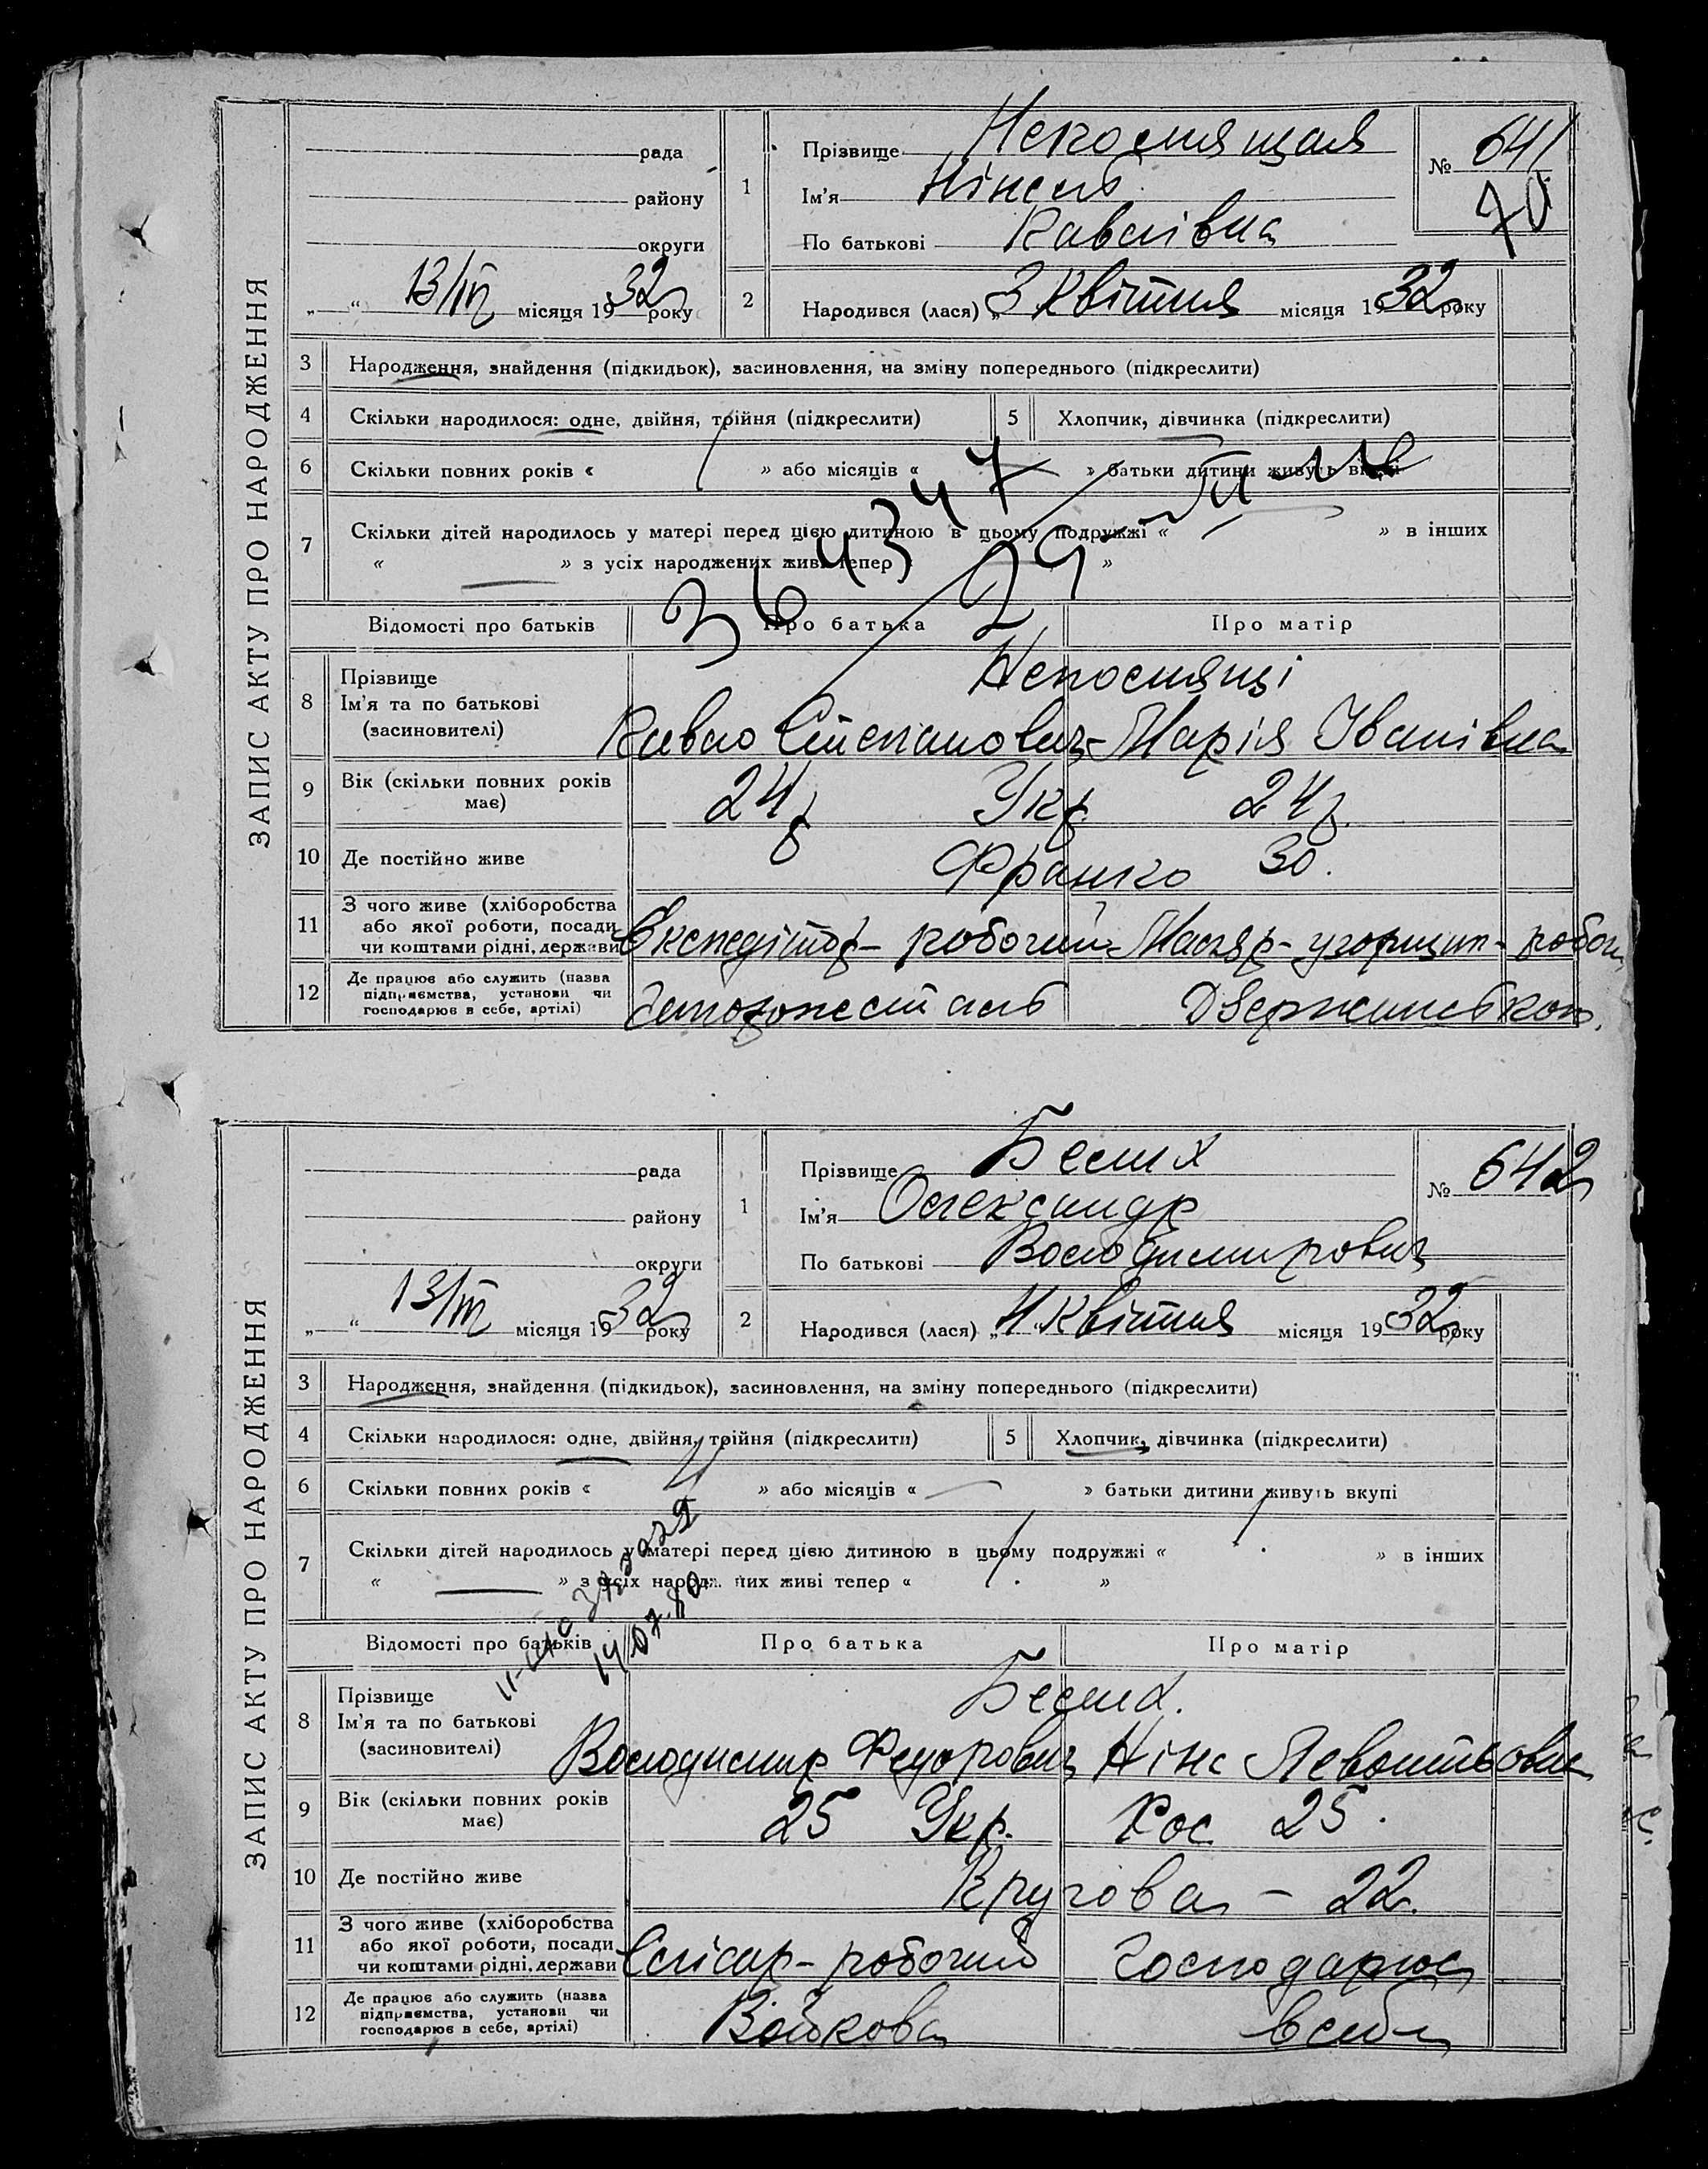 ЗАПИС АКТУ ПРО НАРОДЖЕННЯ
рада
району
округи
13/IV місяця 1932 року
1 Прізвище
Ім'я Нінель
По батькові Павлівна
№ 641
2 Народився (лася) „3 Квітня місяця 1932 року
3 Народження, знайдення (підкидьок), засиновлення, на зміну попереднього (підкреслити)
4 Скільки народилося: одне, двійня, трійня (підкреслити) 5 Хлопчик, дівчинка (підкреслити)
6 Скільки повних років « » або місяців « » батьки дитини живуть
7 Скільки дітей народилось у матері перед цією дитиною в цьому подружжі « » в інших
« » з усіх народжених живі тепер « »
Відомості про батьків Про батька Про матір
8 Прізвище
Ім'я та по батькові
(засиновителі) Павло Степанович Марія Іванівна
9 Вік (скільки повних років
має) 24 р Укр 24 р.
10 Де постійно живе Франко 30.
11 З чого живе (хліборобства
або якої роботи, посади,
чи коштами рідні, держави Експедітор - робочий
12 Де працює або служить (назва
підприємства, установи чи
господарює в себе, артілі)
ЗАПИС АКТУ ПРО НАРОДЖЕННЯ
рада
району
округи
13/IV місяця 1932 року
1 Прізвище Бесмих
Ім'я Олександр
По батькові Володимирович
№ 642
2 Народився (лася) „4 Квітня місяця 1932 року
3 Народження, знайдення (підкидьок), засиновлення, на зміну попереднього (підкреслити)
4 Скільки народилося: одне, двійня, трійня (підкреслити) 5 Хлопчик, дівчинка (підкреслити)
6 Скільки повних років « » або місяців « » батьки дитини живуть вкупі
7 Скільки дітей народилось у матері перед цією дитиною в цьому подружжі « » в інших
« » з усіх них живі тепер « »
Відомості про батьків Про батька Про матір
8 Прізвище
Ім'я та по батькові
(засиновителі) Володимир Федорович Ніна
9 Вік (скільки повних років
має) 25 Укр. Рос 25.
10 Де постійно живе Кругова - 22.
11 З чого живе (хліборобства
або якої роботи, посади,
чи коштами рідні, держави Слісар - робочий Господарює
12 Де працює або служить (назва
підприємства, установи чи
господарює в себе, артілі) Войкова в себе